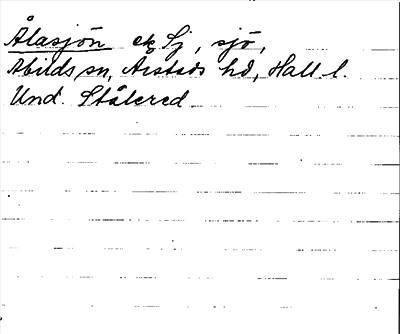 Ålasjön ek Sj, sjö,
Abilds sn, Årstads hd, Hall l.
Und. Stålered